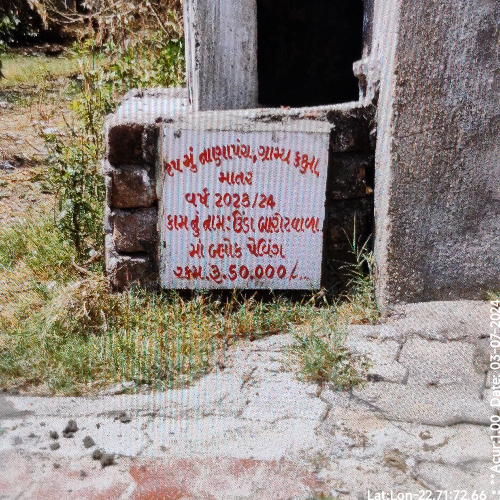 ૧૫ મું નાણાપંચ, ગ્રામ્ય કક્ષા,
માતર
વર્ષ 2023/24
કામ નું નામ: ઉંડા બારોટવાળા
માં બ્લોક પેવિંગ
રકમ. રૂ. 50,000/-
Lat:Lon-22.71:72.66
Acur:1.00 Date: 05-07-202